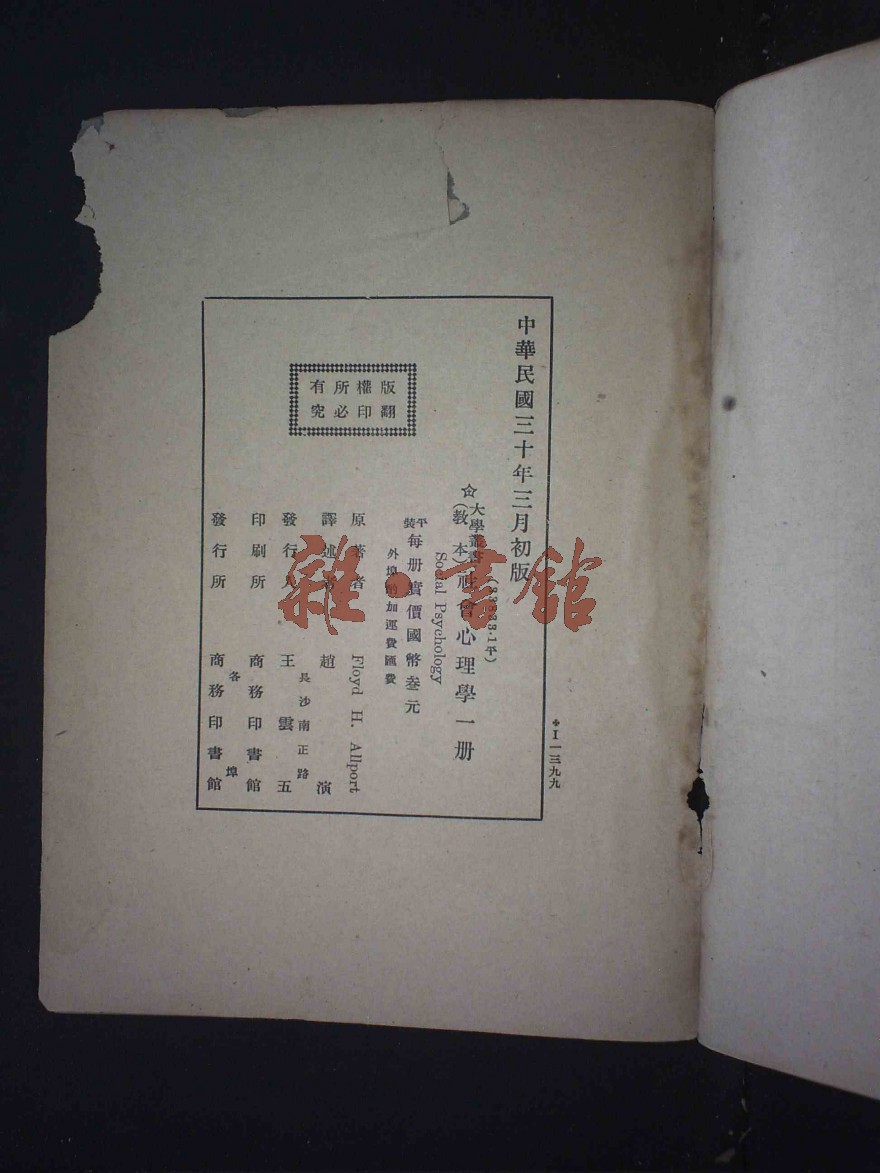 中華民國三十年三月初版
☆大學叢書(教本)社會心理學一册
Social Psychology
平裝每册實價國幣叁元
外埠酌加運費匯費
原著者 Floyd H. Allport
譯述者 趙演
長沙南正路
發行人 王雲五
印刷所 商務印書館
各埠
發行所 商務印書館
版權所有
翻印必究
✥I一三九九
雜·書館